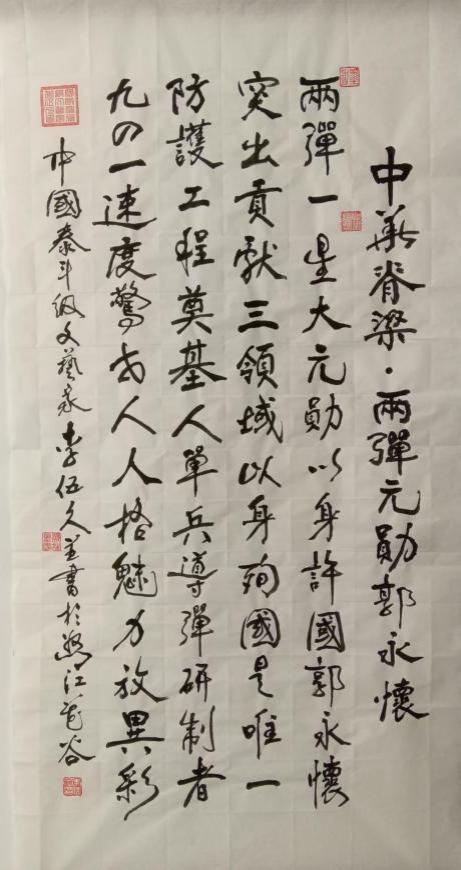 中華脊梁·兩彈元勛郭永懷
兩彈一星大元勛以身許國郭永懷
突出貢獻三領域以身殉國是唯一
防護工程奠基人單兵導彈研制者
九〇一速度驚世人人格魅力放異彩
中國泰斗級文藝家李伍久並書於怒江花谷